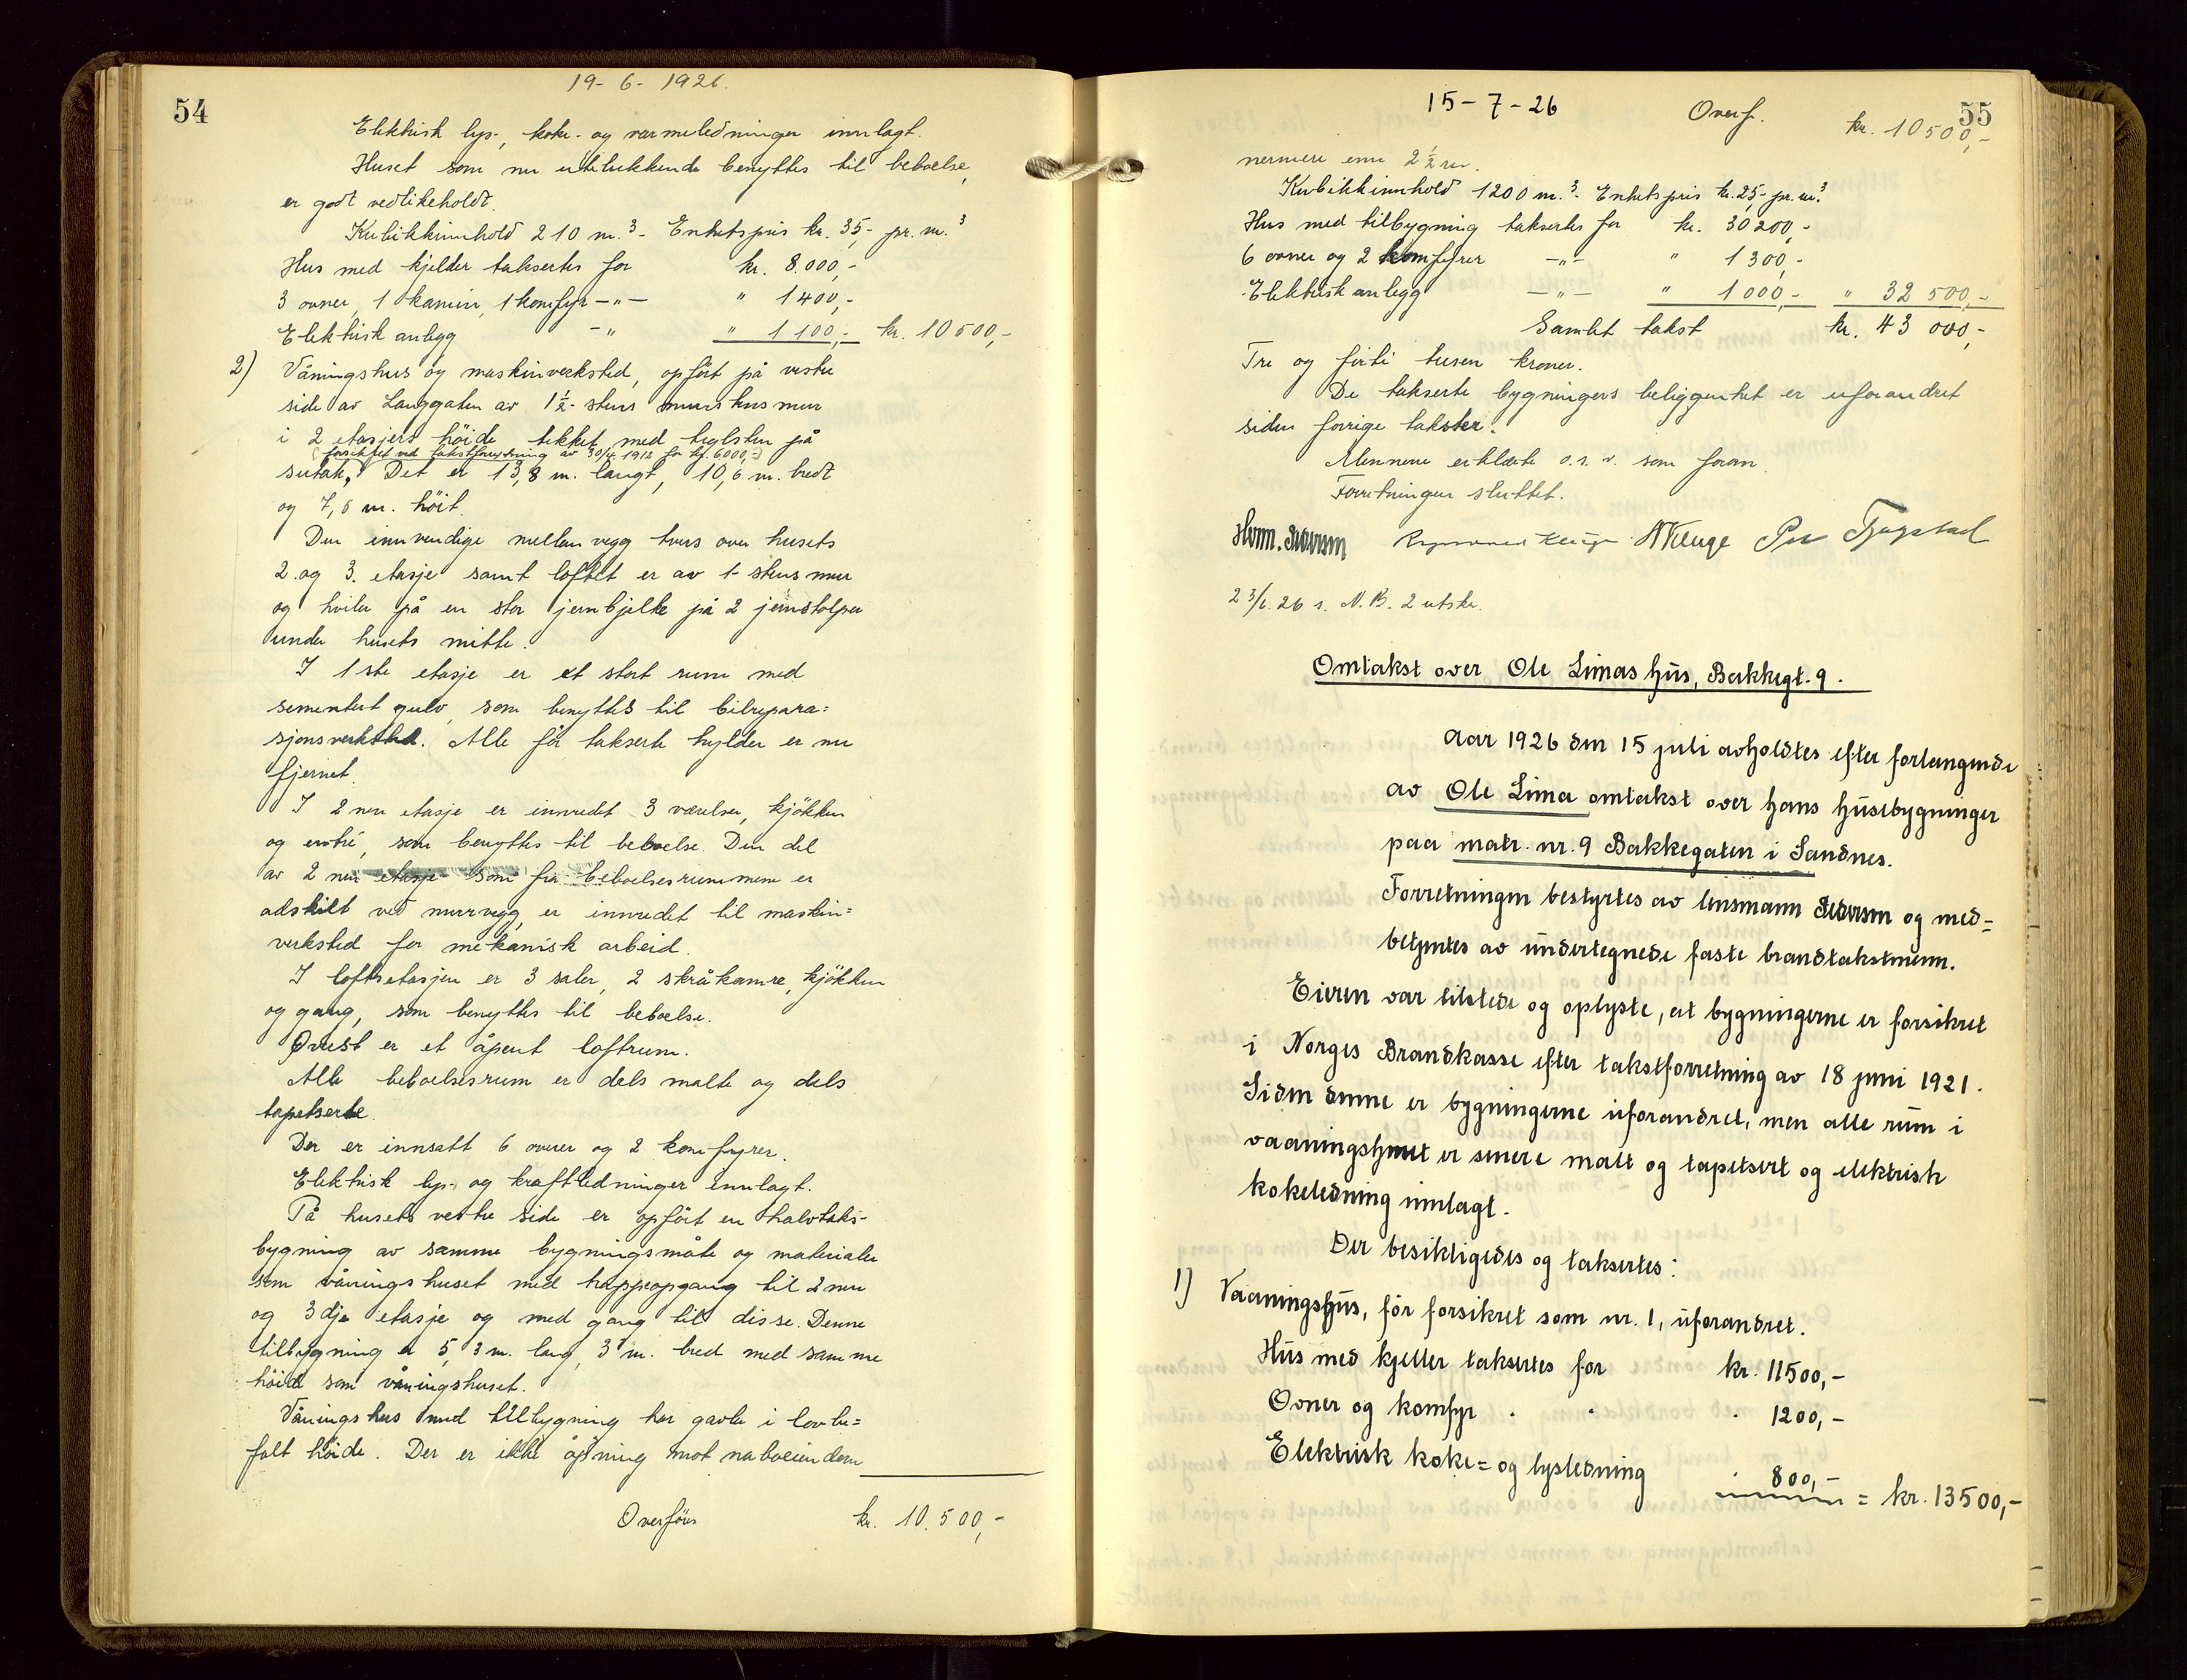 54
19-6-1926.
Elektrisk lys-, koke- og varmeledninger innlagt.
Huset som nu utelukkende benyttes til beboelse,
er godt vedlikeholdt.
Kubikkinnhold 210 m.³- Enhetspris kr. 35,- pr. m.³
Hus med kjelder taksertes for kr. 8.000,-
3 ovner, 1 kamin, 1 komfyr -"- " 1400,-
Elektrisk anlegg -"- " 1100,- kr. 10500,-
2) Våningshus og maskinverksted, opført på vestre
side av Langgaten av 1½- stens murstensmur
i 2 etasjers høide tekket med teglsten på
(forsikret ved takstforretning av 30/4 1912 for kr. 6000,-)
sutak, Det er 13,8 m. langt, 10,6 m. bredt
og 7,5 m. höit.
Den innvendige mellemvegg tvers over husets
2. og 3. etasje samt loftet er av 1- stens mur
og hviler på en stor jernbjelke på 2 jernstolper
under husets mitte.
I 1ste etasje er et stort rum med
sementert gulv, som benyttes til bilrepara=
sjonsverksted. Alle før takserte hylder er nu
fjernet.
I 2nen etasje er innredet 3 værelser, kjökken
og entré, som benyttes til beboelse. Den del
av 2 nen etasje som fra beboelsesrummene er
adskilt ved murvegg, er innredet til maskin=
verksted for mekanisk arbeid.
I loftsetasjen er 3 saler, 2 skråkamre, kjökken
og gang, som benyttes til beboelse.
Øverst er et åpent loftrum.
Alle beboelsesrum er dels malte og dels
tapetserte.
Der er innsatt 6 ovner og 2 komfyrer.
Elektrisk lys- og kraftledninger innlagt.
På husets vestre side er opfört en halvtaks-
bygning av samme bygningsmåte og materialer
som våningshuset med trappeopgang til 2nen
og 3dje etasje og med gang til disse. Denne
tilbygning er 5,3 m. lang, 3 m. bred med samme
höide som våningshuset.
Våningshus med tilbygning har gavle i lovbe=
falt höide. Der er ikke åpning mot naboeiendom
Overföres kr. 10.500,-
55
15-7-26 Overf. kr. 10500,-
nermere enn 2½ m.
Kubikkinnhold 1200 m.³. Enhetspris kr. 25,- pr. m.³
Hus med tilbygning taksertes for kr. 30200,-
6 ovner og 2 komfyrer -"- " 1300,-
Elektrisk anlegg -"- " 1000,- " 32500,-
Samlet takst kr. 43 000,-
Tre og firti tusen kroner.
De takserte bygningers beliggenhet er uforandret
siden forrige takster.
Mennene erklærte o.s.v. som foran.
Forretningen sluttet.
23/6. 26 s. N.B. 2 utskr.
Omtakst over Ole Limas hus, Bakkegt. 9.
Aar 1926 den 15 juli avholdtes efter forlangende
av Ole Lima omtakst over hans husebygninger
paa matr. nr. 9 Bakkegaten i Sandnes.
Forretningen bestyrtes av lensmann Sivertsen og med=
betjentes av undertegnede faste brandtakstmenn.
Eieren var tilstede og oplyste, at bygningerne er forsikret
i Norges Brandkasse efter takstforretning av 18 juni 1921.
Siden denne er bygningerne uforandret, men alle rum i
vaaningshuset er senere malt og tapetsert og elektrisk
kokeledning innlagt.
Der besiktigedes og taksertes:
1) Vaaningshus, før forsikret som nr. 1, uforandret.
Hus med kjeller taksertes for kr. 11500,-
Ovner og komfyr " " " 1200,-
Elektrisk koke= og lysledning " 800,- = kr. 13500,-